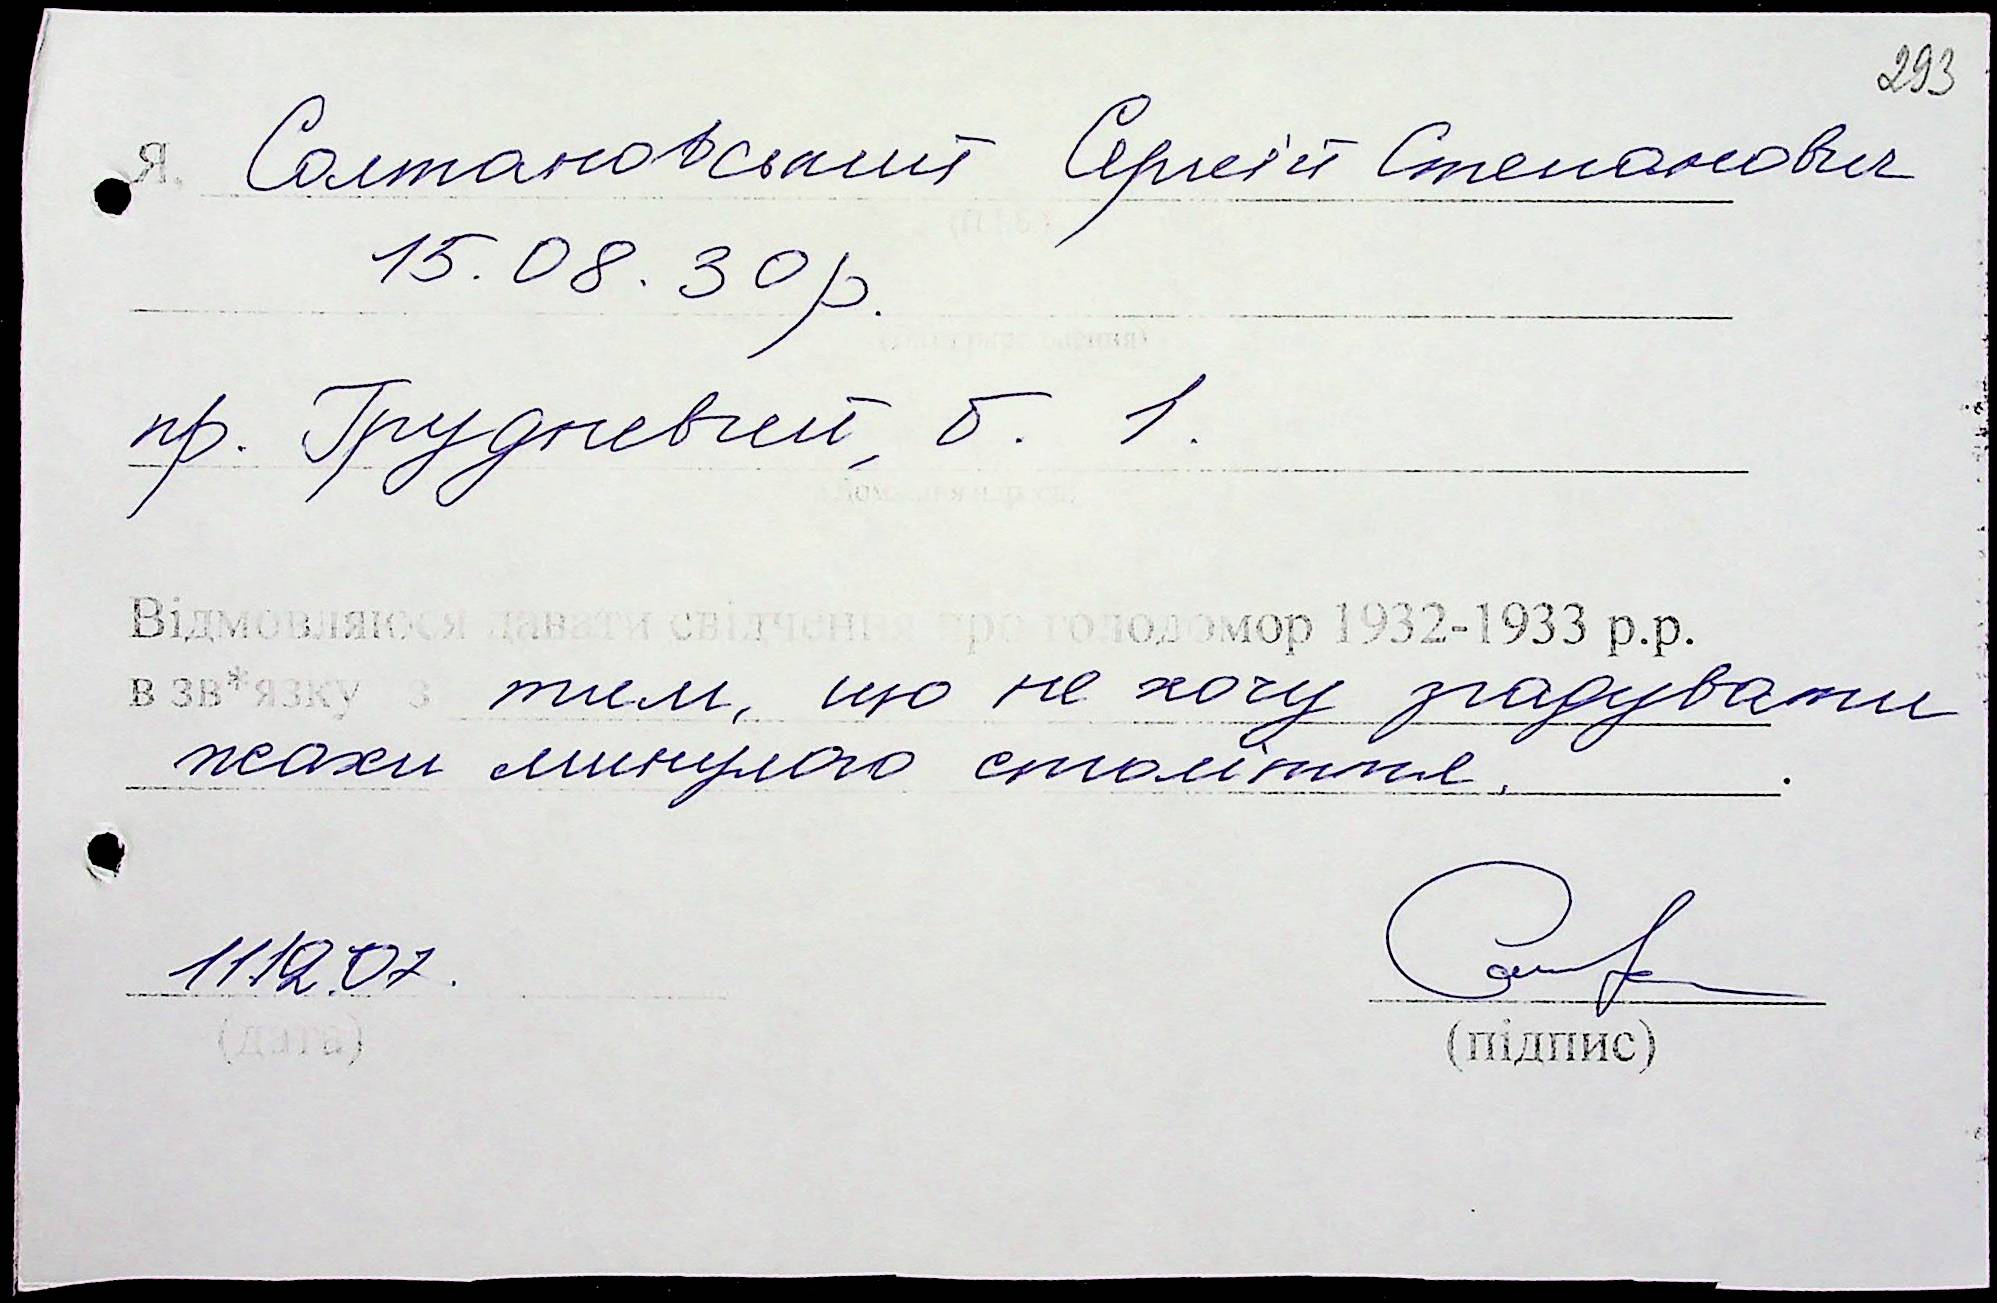 293
Я, Солтановський Сергій Степанович
(П.І.П)
15.08.30р.
пр. Грудневий, б. 1.
Домашня адреса
Відмовляюся давати свідчення про голодомор 1932-1933 р.р.
в зв*язку з тим, що не хочу згадувати
жахи минулого століття.
11.12.07.
(дата)
(підпис)